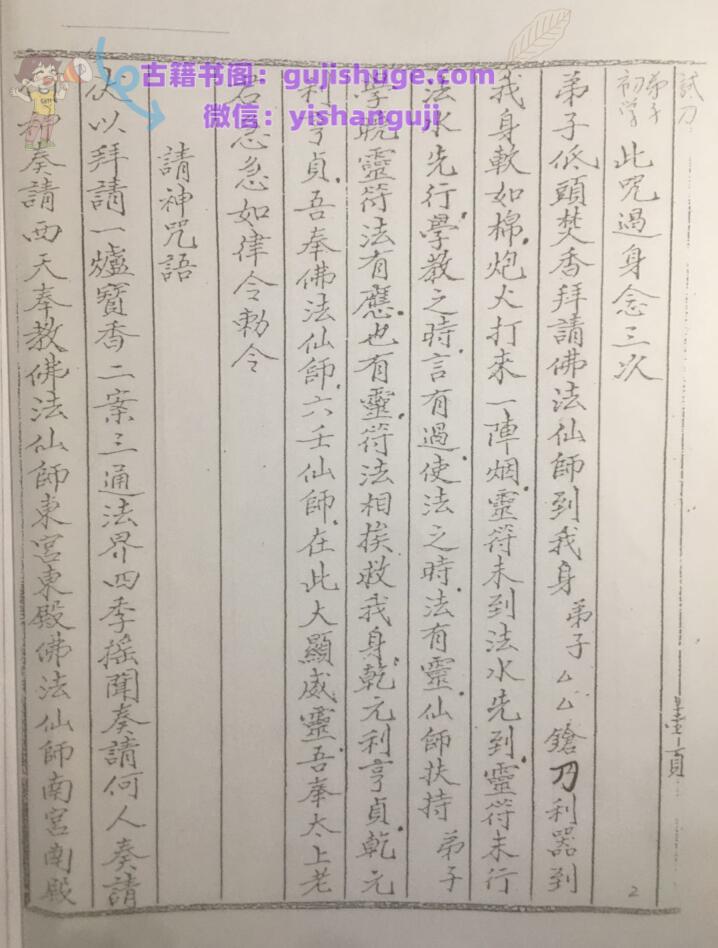 古籍书图：gujishuge.com
微信：yishanguji
試刀
弟子初学 此咒過身念三次
弟子低頭焚香拜請佛法仙師到我身 弟子厶厶鎗刀利器到
我身軟如棉炮火打來一陣烟靈符未到法水先到靈符未行
法水先行學教之時言有過使法之時法有靈仙師扶持 弟子
學脫靈符法有應也有靈符法相挨救我身乾元利亨貞乾元
利亨貞吾奉佛法仙師六壬仙師在此大顯威靈吾奉太上老
君急急如律令勅令
請神咒語
伏以拜請一爐寶香二案三通法界四季摇聞奏請何人奏請
奏請西天奉教佛法仙師東宮東殿佛法仙師南宮南殿
壹頁
2